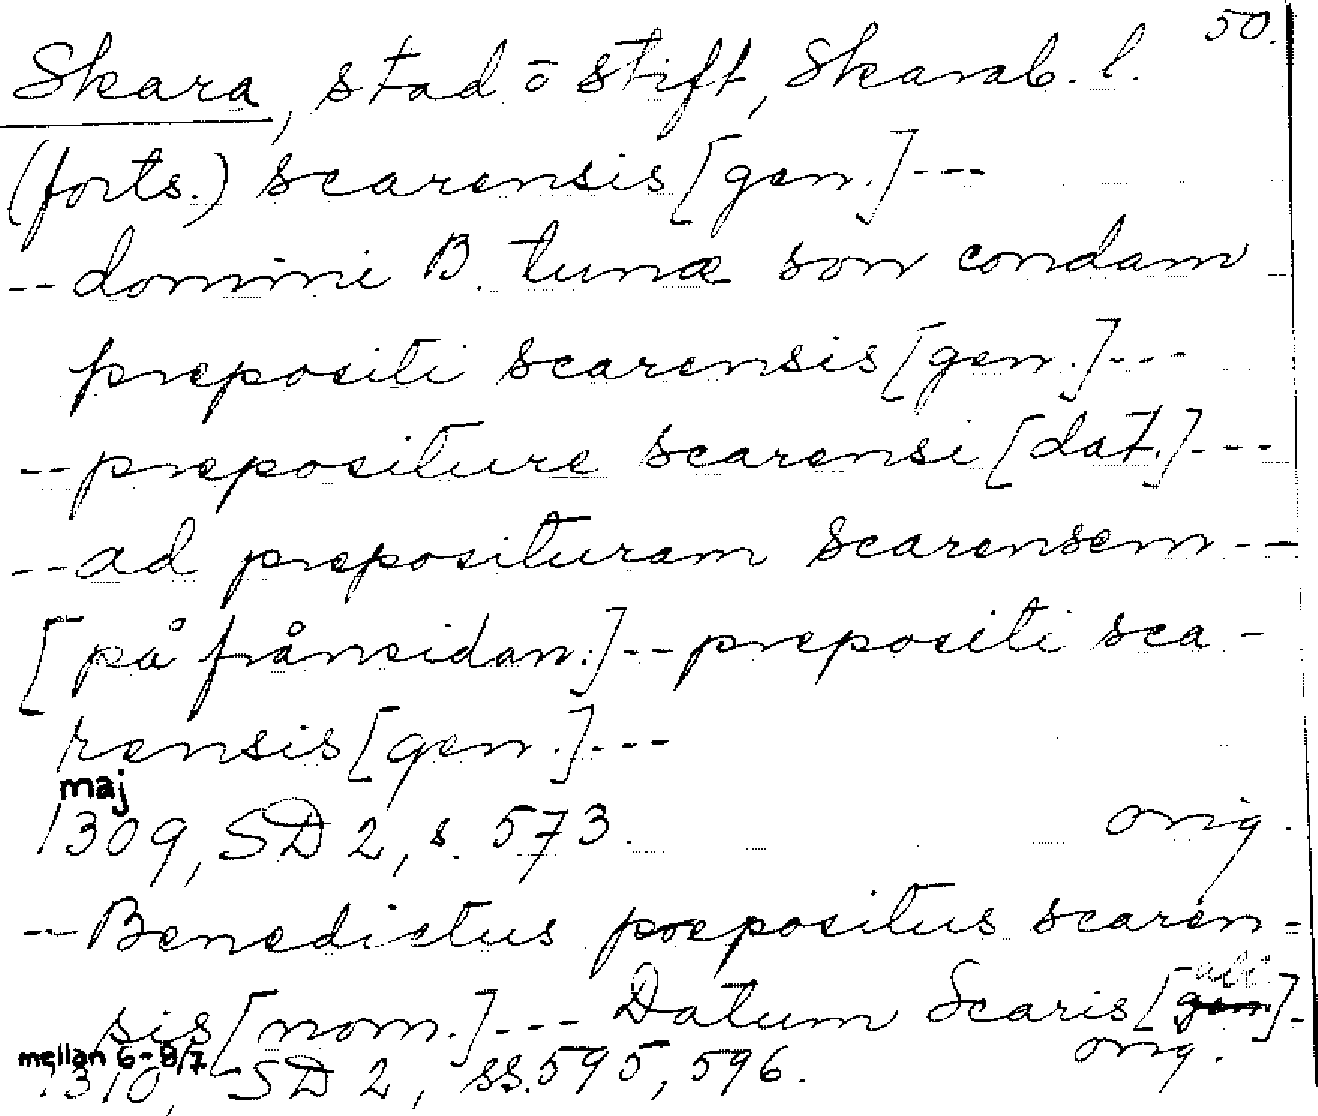 50.
Skara, stad o stift, Skarab. l.
(forts.) scarensis [gen.] ---
-- domini B. tunæ son condam --
prepositi scarensis [gen.] ---
-- prepositure scarensi [dat.] ---
-- ad preposituram scarensem --
[på frånsidan:] -- prepositi sca-
rensis [gen.] ---
maj
1309, SD 2, s. 573. orig.
-- Benedictus prepositus scaren-
sis [nom.] --- Datum Scaris [gen abl.].
mellan 6-8/7
1310, SD 2, ss. 595, 596. orig.